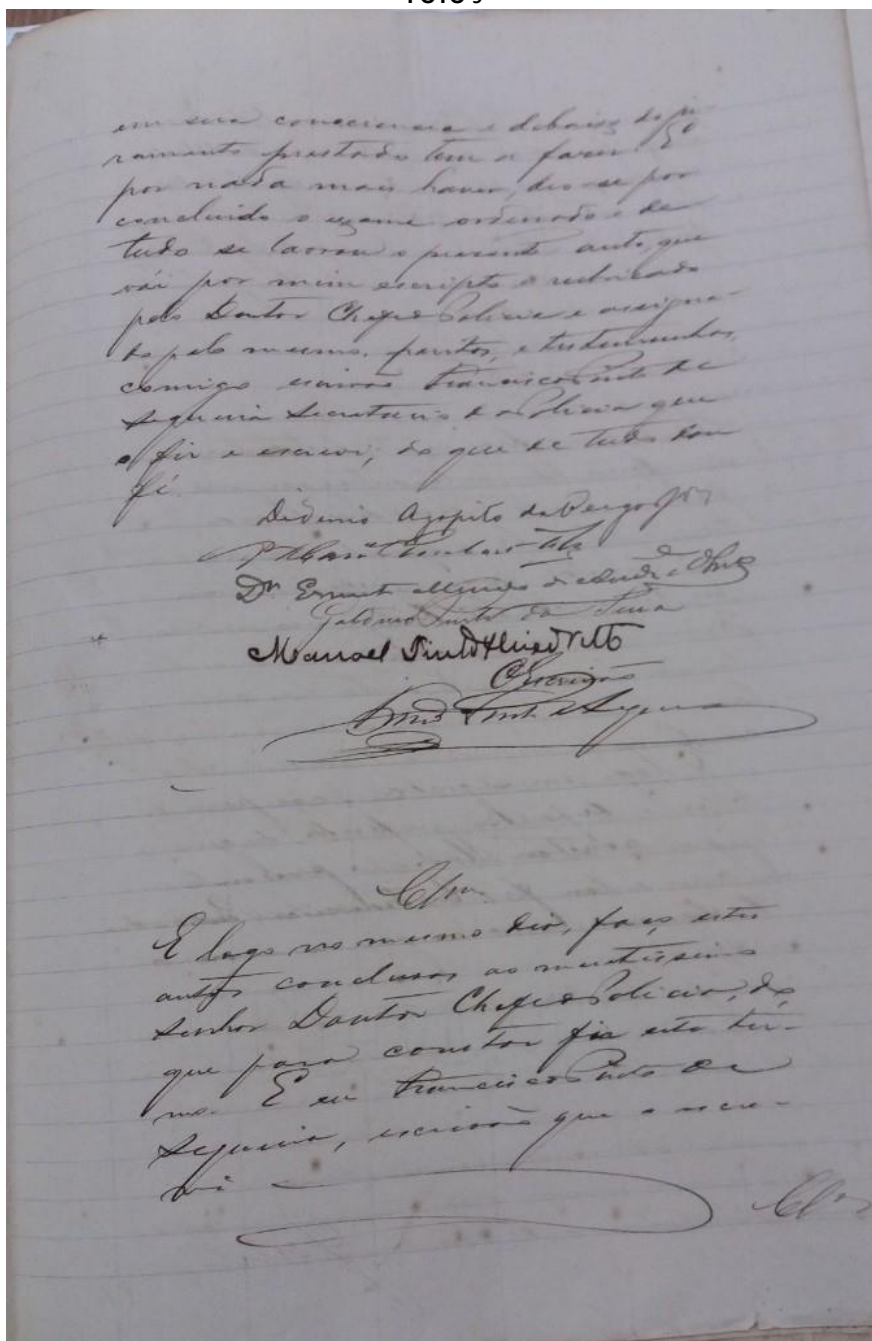 em sua consciencia e debaixo do ju-
ramento prestado tem a fazer. E
por nada mais haver, deo-se por
concluido o exame ordenado e de
tudo se lavrou o presente auto, que
vái por mim escripto e rubricado
pelo Doutor Chefe de Policia e assigna-
do pelo mesmo, peritos, e testemunhas,
comigo escrivão Francisco Pinto de
Sequeira Secretario da Policia que
o fiz e escrevi; do que de tudo dou
fé.
Didimo Agapito da Veiga Jor
Dr Ernesto Mendo
Galdino Pinto da
Manoel Pinto Netto
O Escrivão
Franco Pinto de Sequeira
Clsm
E logo no mesmo dia, faço estes
autos conclusos ao meretissimo
Senhor Doutor Chefe de Policia, do
que para constar fiz este ter-
mo. E eu Francisco Pinto de
Sequeira, escrivão que o escre-
vi
Cls